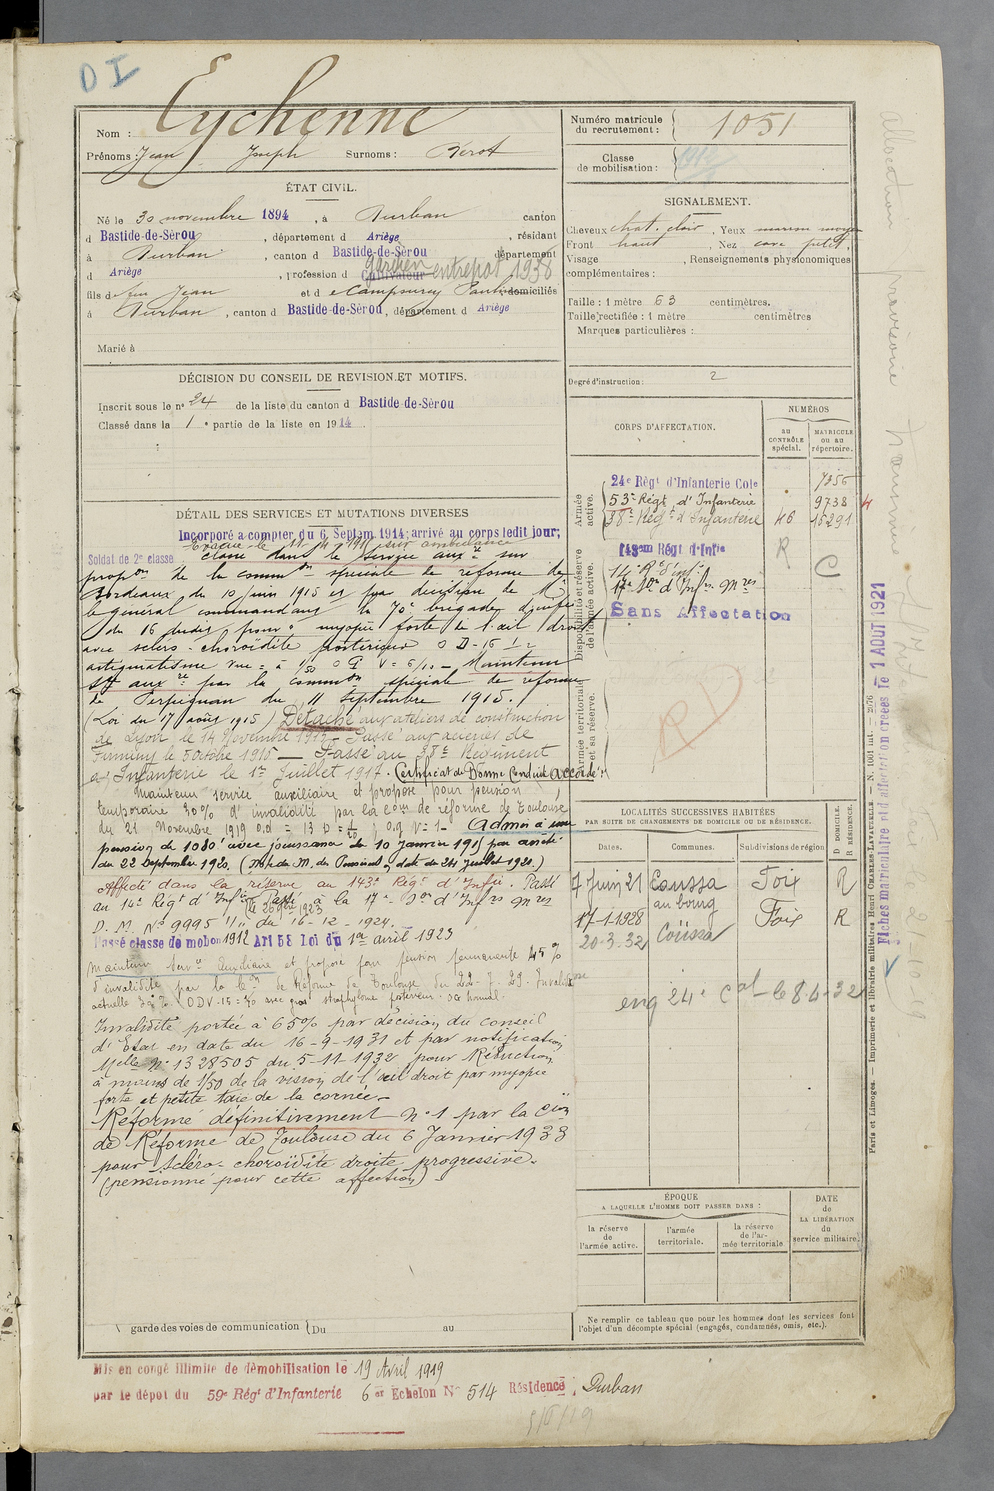 DI
Nom : Eychenne
Prénoms : Jean Joseph Surnoms : Perot
Numéro matricule du recrutement : 1051
Classe de mobilisation : 1912
ÉTAT CIVIL.
Né le 30 novembre 1894, à Durban canton
d Bastide-de-Sèrou, département d Ariège, résidant
à Durban, canton d Bastide-de-Sèrou département
d Ariège, profession d cultivateur gardien entrepot 1938
fils de Jean et de Campourcy domiciliés
à Durban, canton d Bastide-de-Sèrou, département d Ariège
Marié à
SIGNALEMENT.
Cheveux chat. clair, Yeux marron moyen
Front haut, Nez cave petit.
Visage , Renseignements physionomiques
complémentaires :
Taille : 1 mètre 63 centimètres.
Taille rectifiée : 1 mètre centimètres
Marques particulières :
Degré d'instruction : 2
DÉCISION DU CONSEIL DE REVISION ET MOTIFS.
Inscrit sous le n° 24 de la liste du canton d Bastide-de-Sèrou
Classé dans la 1e partie de la liste en 1914.
DÉTAIL DES SERVICES ET MUTATIONS DIVERSES
Incorporé a compter du 6 Septem 1914; arrivé au corps ledit jour;
Soldat de 2e classe
Classé dans le Service auxre sur
propon de la common spéciale de réforme de
Bordeaux du 10 juin 1915 et par décision de Mr
le général commandant la 70e brigade d'infie
du 16 dudit pour : myopie forte de l'œil droit
avec scléro-choroïdite postérieure O D - 16
astigmatisme vue = à 1/50 O G V = 6/10 - Maintenu
Sce auxre par la common spéciale de réforme
de Perpignan du 11 Septembre 1915.
(Loi du 17 août 1915) Détaché aux ateliers de construction
de Lyon le 14 Novembre 1915 - Passé aux aciéries de
Firminy le 5 octobre 1916 — Passé au 38e Régiment
d'Infanterie le 1er Juillet 1917. Certificat de Bonne Conduite accordé.
Maintenu service auxiliaire et proposé pour pension
temporaire 30% d'invalidité par la com de réforme de Toulouse
du 21 Novembre 1919
Admis à une
pension de 1080f avec jouissance du 10 janvier 1919 par arrêté
du 22 septembre 1920.
Affecté dans la réserve au 143e Régt d'Infie. Passé
au 14e Régt d'Infie. Passé à la 17e Son d'Infrs Mres
D. M. N° 9995 du 16-12-1924.
Passé classe de mobon 1912 Art 58 Loi du 1er avril 1923
Maintenu Servce Auxiliaire et proposé pour pension permanente 45%
d'invalidité par la Con de Réforme de Toulouse du 22-7-29.
Invalidité portée à 65% par décision du conseil
d'Etat en date du 16-9-1931 et par notification
Melle n° 1328505 du 5-11-1932 pour Réduction
à moins de 1/50 de la vision de l'œil droit par myopie
forte et petite taie de la cornée.
Réformé définitivement n° 1 par la Con
de Réforme de Toulouse du 6 Janvier 1938
pour scléro-choroïdite droite progressive.
(pensionné pour cette affection)
garde des voies de communication Du au
CORPS D'AFFECTATION.
NUMÉROS
au CONTRÔLE spécial.
MATRICULE ou au répertoire.
Armée active.
24e Règt d'Infanterie Cole 7256
53e Régt d'Infanterie 9738
38e Régt d'Infanterie 46 15291
Disponibilité et réserve de l'armée active.
143em Régt d'Infie
14e R. Infie
17e Son d'Infrs Mres
Sans Affectation
R
C
Armée territoriale et sa réserve.
RD
LOCALITÉS SUCCESSIVES HABITÉES
PAR SUITE DE CHANGEMENTS DE DOMICILE OU DE RÉSIDENCE.
Dates. Communes. Subdivisions de région D DOMICILE. R RÉSIDENCE.
7 Juin 21 Coussa au bourg Foix R
17-1-1928 Foix R
20-3-32 Coussa
eng 24e Cal - le 8-4-32
ÉPOQUE
A LAQUELLE L'HOMME DOIT PASSER DANS :
la réserve de l'armée active.
l'armée territoriale.
la réserve de l'armée territoriale
DATE de LA LIBÉRATION du service militaire.
Ne remplir ce tableau que pour les hommes dont les services font
l'objet d'un décompte spécial (engagés, condamnés, omis, etc.).
Mis en congé illimité de démobilisation le 19 Avril 1919
par le dépot du 59e Régt d'Infanterie 6e Echelon N° 514 Résidence, Durban
Paris et Limoges. — Imprimerie et librairie militaires Henri CHARLES-LAVAUZELLE.
Fiches matriculaire et d'affectation créées le 1 AOUT 1921